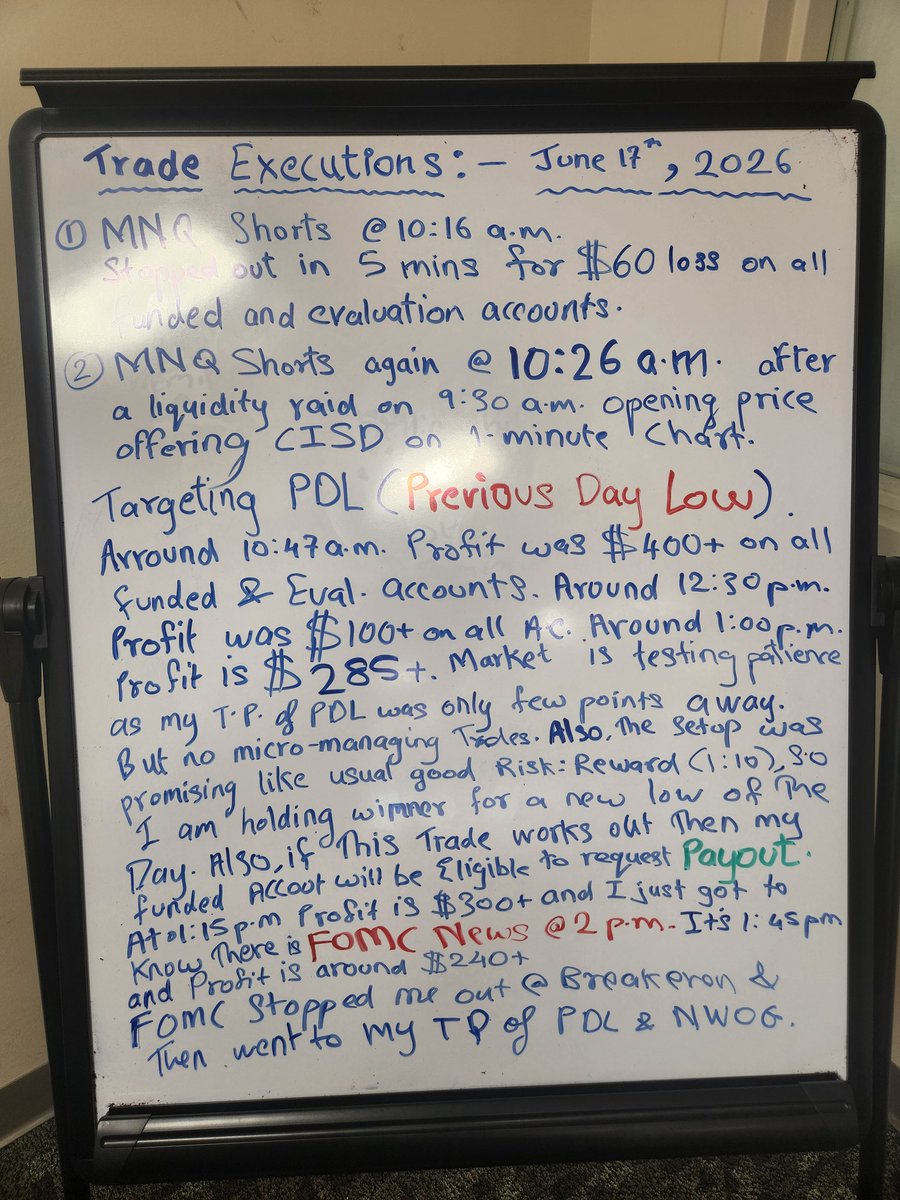 Trade Executions:- June 17th, 2026
① MNQ Shorts @ 10:16 a.m.
Stopped out in 5 mins for $60 loss on all
funded and evaluation accounts.
② MNQ Shorts again @ 10:26 a.m. after
a liquidity raid on 9:30 a.m. opening price
offering CISD on 1-minute Chart.
Targeting PDL (Previous Day Low).
Arround 10:47 a.m. Profit was $400+ on all
funded & Eval. accounts. Around 12:30 p.m.
Profit was $100+ on all A.C. Around 1:00 p.m.
Profit is $285+. Market is testing patience
as my T.P. of PDL was only few points away.
But no micro-managing Trades. Also, The setup was
promising like usual good Risk:Reward (1:10), so
I am holding winner for a new low of The
Day. Also, if This Trade works out Then my
funded Accout will be Eligible to request Payout.
At 01:15 p.m Profit is $300+ and I just got to
know There is FOMC News @ 2 p.m. It's 1:45 pm
and Profit is around $240+
FOMC Stopped me out @ Breakeven &
Then went to my TP of PDL & NWOG.